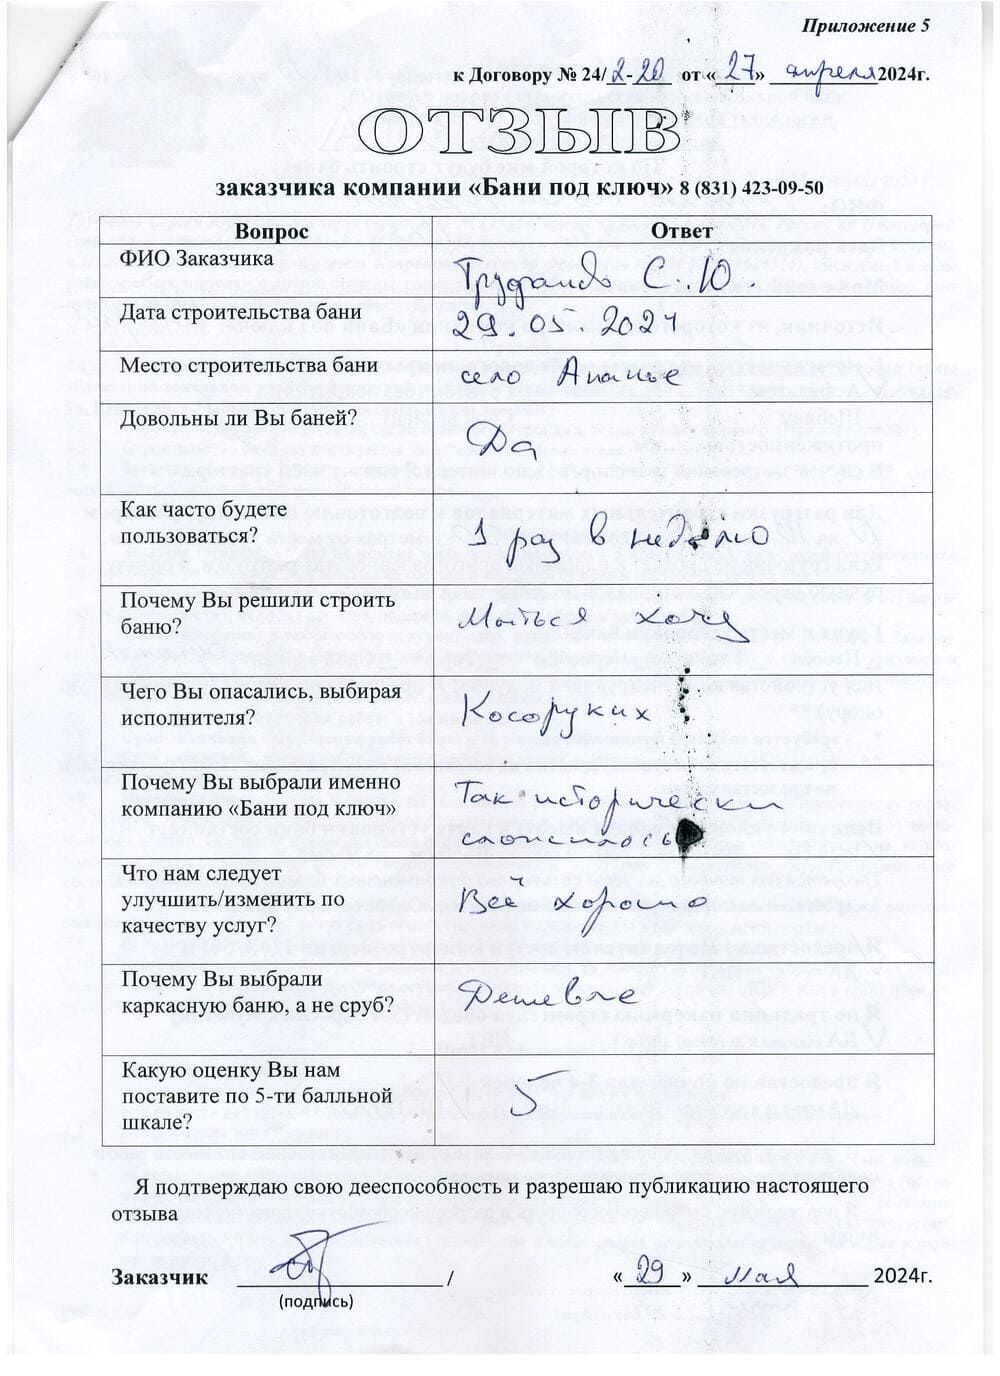 Приложение 5
к Договору № 24/ 2-20 от «27» апреля 2024г.
ОТЗЫВ
заказчика компании «Бани под ключ» 8 (831) 423-09-50
Вопрос Ответ
ФИО Заказчика С.Ю.
Дата строительства бани 29.05 2024
Место строительства бани село Ананье
Довольны ли Вы баней? Да
Как часто будете
пользоваться? 1 раз в неделю
Почему Вы решили строить
баню? Мыться хочу
Чего Вы опасались, выбирая
исполнителя? Косоруких
Почему Вы выбрали именно Так исторически
компанию «Бани под ключ» сложилось
Что нам следует
улучшить/изменить по Всё хорошо
качеству услуг?
Почему Вы выбрали
каркасную баню, а не сруб? Дешевле
Какую оценку Вы нам
поставите по 5-ти балльной 5
шкале?
Я подтверждаю свою дееспособность и разрешаю публикацию настоящего
отзыва
Заказчик / «29» мая 2024г.
(подпись)